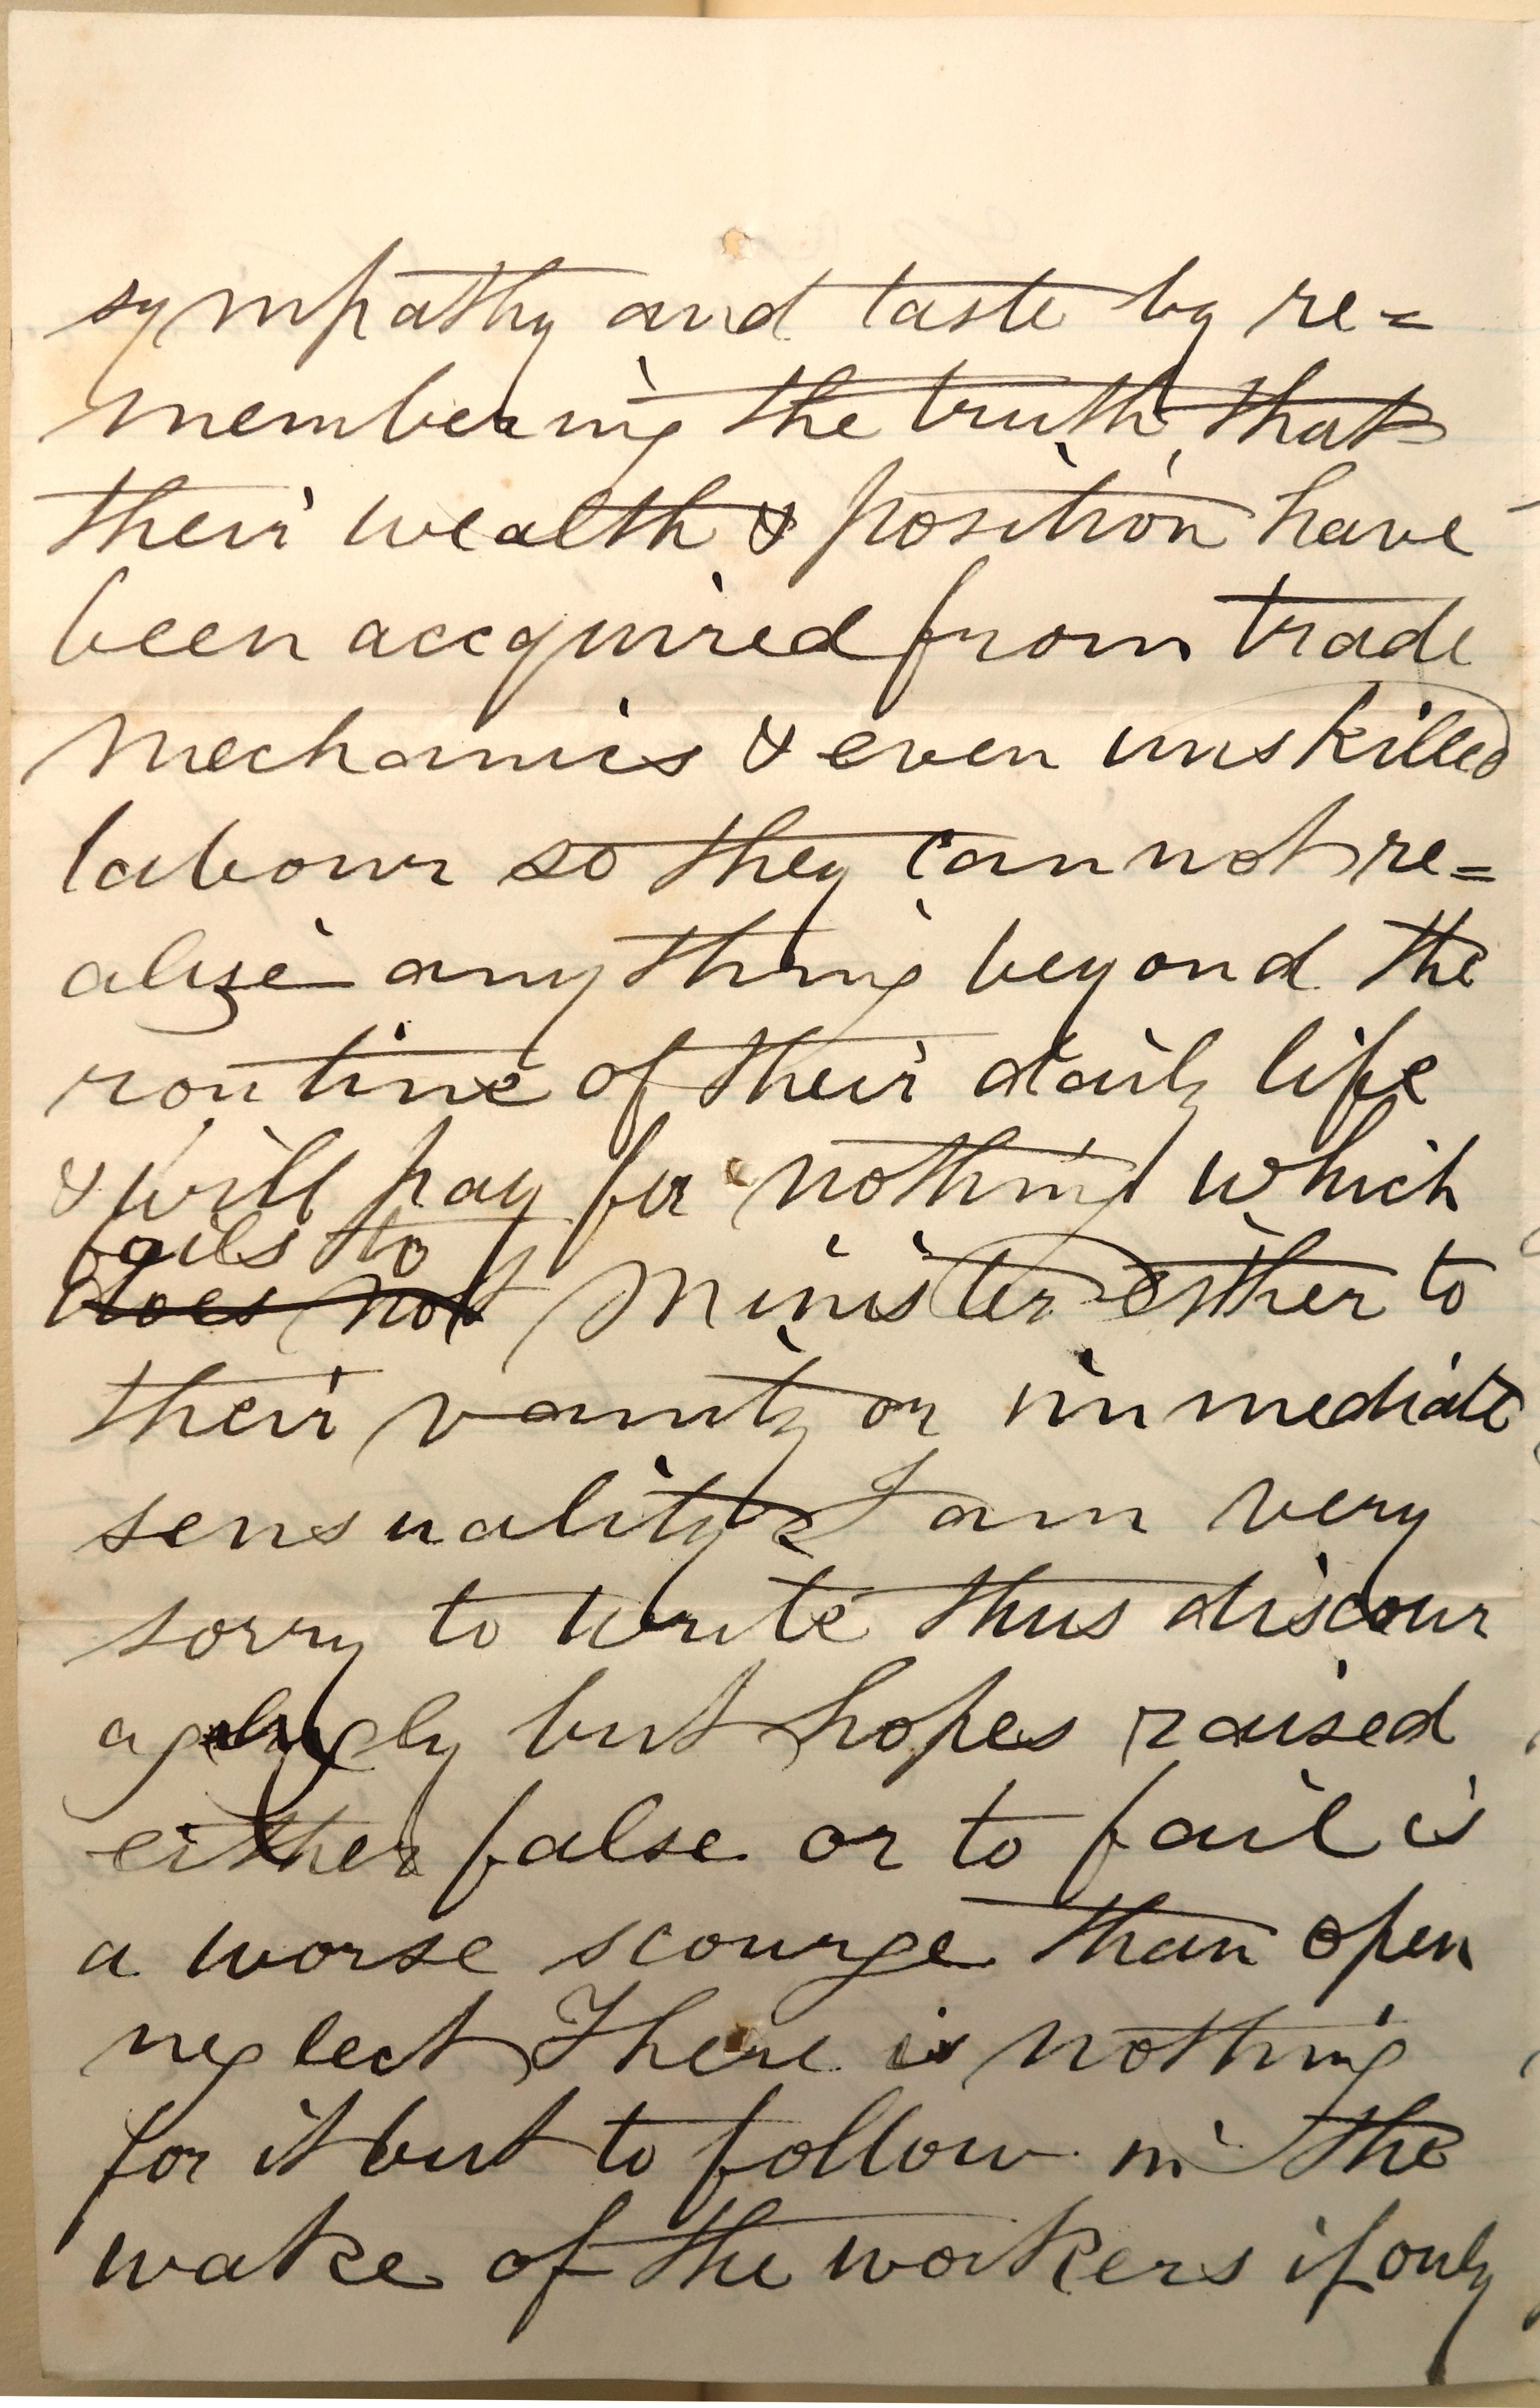 sympathy and taste by re=
membering the truth, that
their wealth & position have
been accquired from trade
mechanics & even unskilled
labour so they cannot re=
alize anything beyond the
routine of their daily life
& will pay for nothing which
fails to
does not minister either to
their vanity or immediate
sensuality I am very
sorry to write thus discour
agingly but hopes raised
either false or to fail is
a worse scourge than open
neglect There is nothing
for it but to follow in the
wake of the workers if only